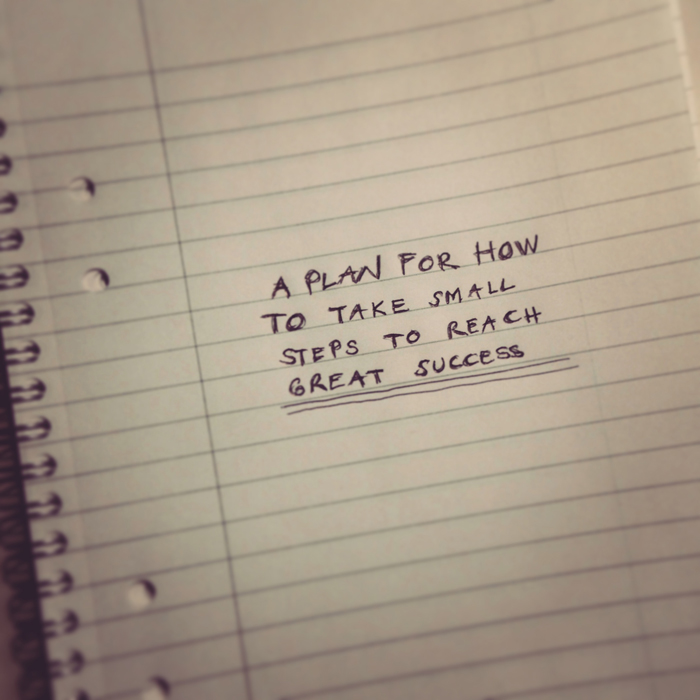 A PLAN FOR HOW
TO TAKE SMALL
STEPS TO REACH
GREAT SUCCESS